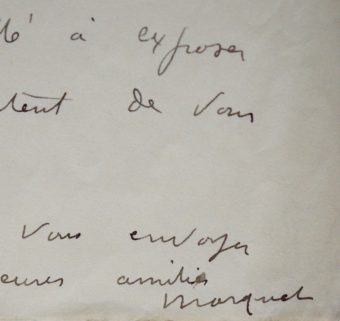 té à exposer
tent de vous
vous envoyer
eures amitiés
Marquet